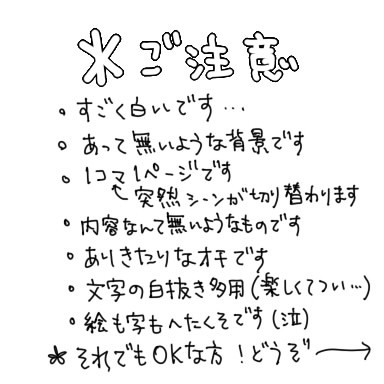 ※ご注意
・すごく白いです…
・あって無いような背景です
・1コマ1ページです
突然シーンが切り替わります
・内容なんて無いようなものです
・ありきたりなオチです
・文字の白抜き多用(楽しくてつい…)
・絵も字もへたくそです(泣)
*それでもOKな方!どうぞ→